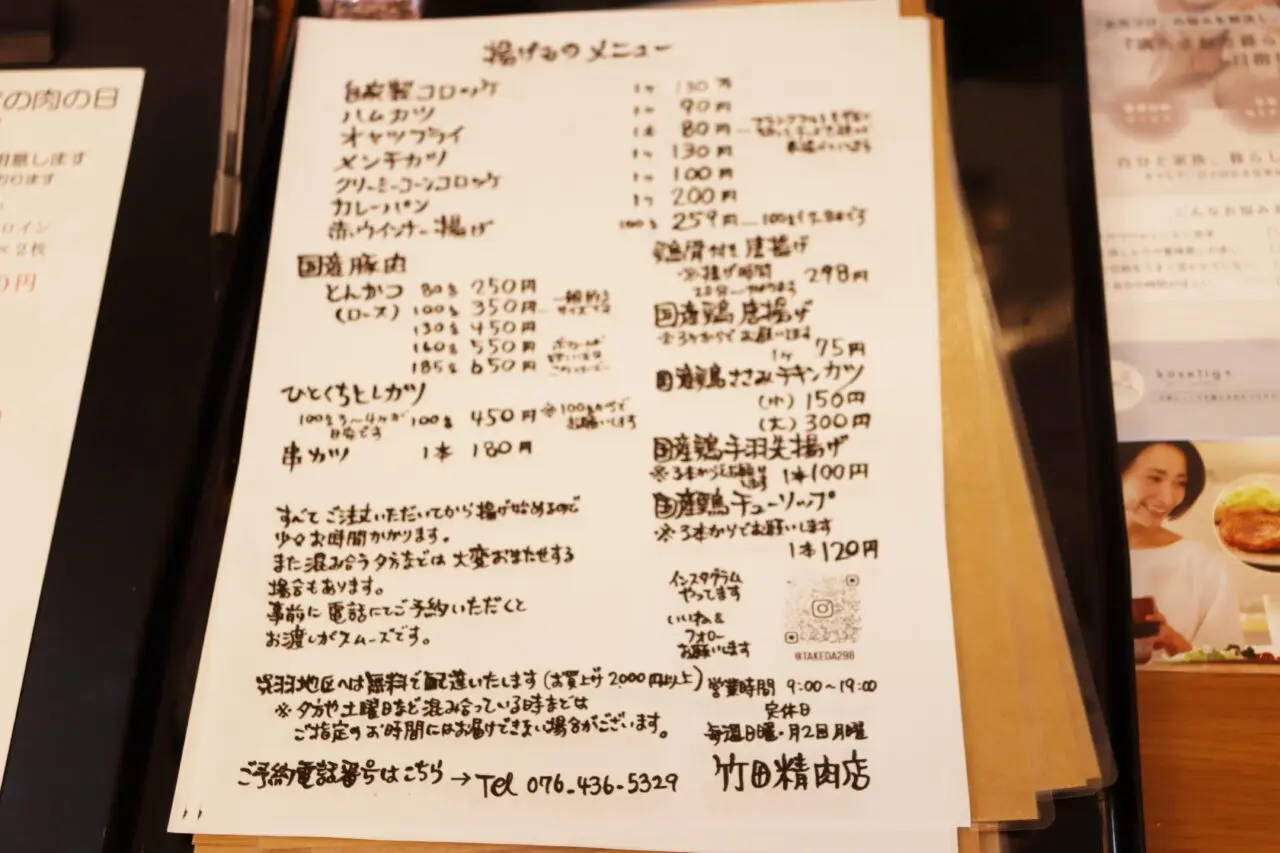 揚げもの メニュー
自家製コロッケ 1ケ 130円
ハムカツ 1ケ 90円
オヤツフライ 1本 80円
メンチカツ 1ケ 130円
クリーミーコーンコロッケ 1ケ 100円
カレーパン 1ケ 200円
赤ウインナー揚げ 100g 259円
国産豚肉
とんかつ 80g 250円
(ロース) 100g 350円 一般的な サイズです
130g 450円
160g 550円
185g 650円
ひとくちヒレカツ
100g 3〜4ヶが 目安です 100g 450円 ※100gからで お願いします
串カツ 1本 180円
鶏骨付き唐揚げ
※揚げ時間 298円
国産鶏 唐揚げ
※3ケからでお願いします
1ケ 75円
国産鶏ささみチキンカツ
(小) 150円
(大) 300円
国産鶏手羽先揚げ
※3本からでお願いします 1本100円
国産鶏チューリップ
※3本からでお願いします
1本120円
すべてご注文いただいてから揚げ始めるので
少々お時間かかります。
また混み合う夕方などは大変おまたせする
場合もあります。
事前に電話にてご予約いただくと
お渡しがスムーズです。
インスタグラム
やってます
いいね&
フォロー
お願いします
@TAKEDA298
呉羽地区へは無料で配達いたします(お買上げ2,000円以上)
※夕方や土曜日など混み合っている時などは
ご指定のお時間にはお届けできない場合がございます。
営業時間 9:00〜19:00
定休日
毎週日曜・月2回月曜
ご予約電話番号はこちら→Tel 076-436-5329
竹田精肉店
の肉の日
用意します
おります
ロイン
×2枚
0円
自分と家族、暮らし
こんなお悩み
koselig+